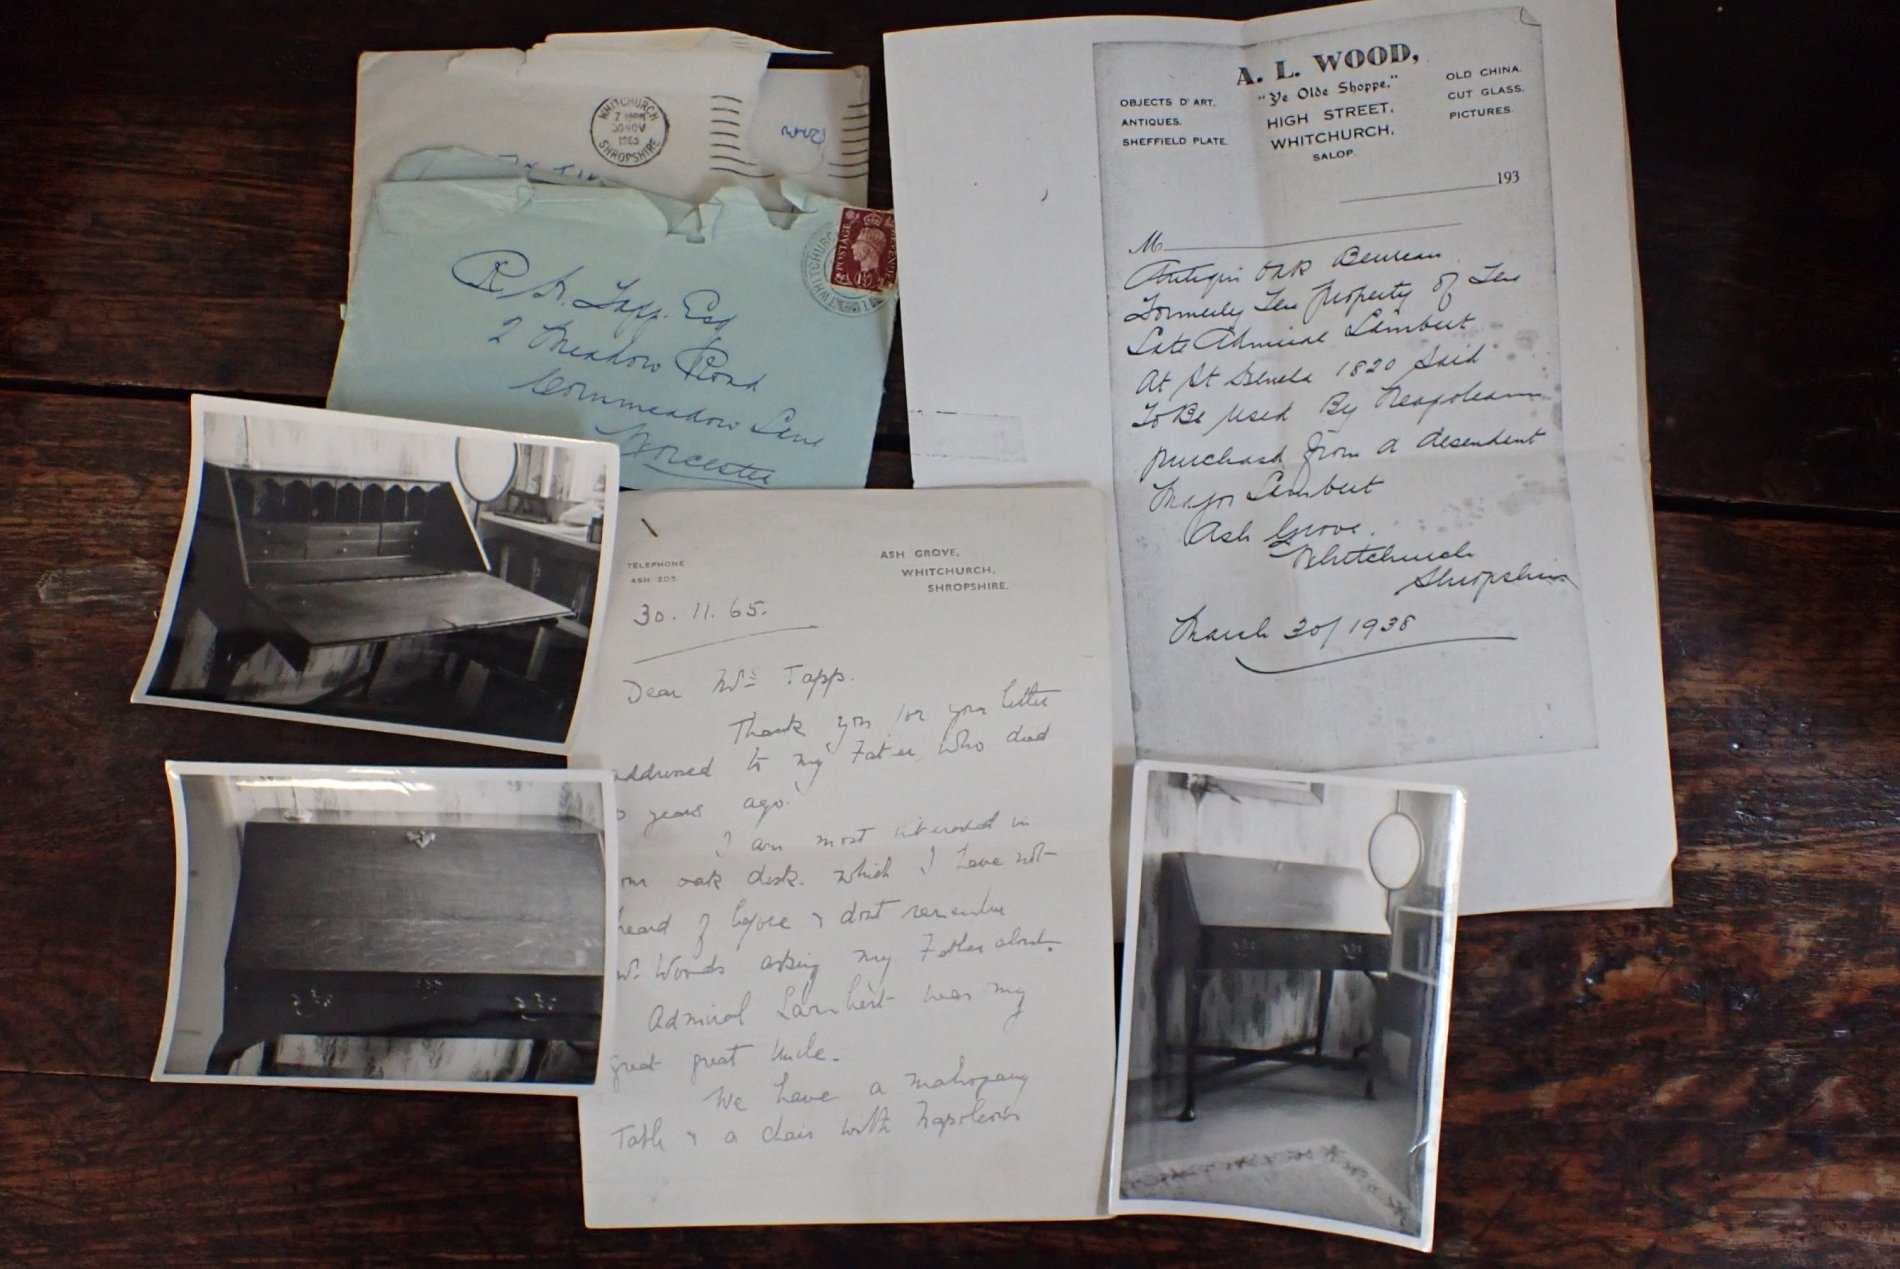 WHITCHURCH
7 PM
30 NOV
1965
SHROPSHIRE
POSTAGE
WHITCHURCH
R. A. Tapp. Esq
2 Meadow Road
Cornmeadow Lane
Worcester
A. L. WOOD,
"Ye Olde Shoppe,"
HIGH STREET,
WHITCHURCH,
SALOP.
OBJECTS D'ART.
ANTIQUES.
SHEFFIELD PLATE.
OLD CHINA.
CUT GLASS.
PICTURES.
193
M
Oak Beureau
Formerly The Property of The
Late Admiral Lambert
At St Helena 1820 Said
To Be Used By Neapoleann
purchased from a desendent
Major Lambert
Ash Grove.
Whitchurch
Shropshire
March 30/1938
TELEPHONE
ASH 205
ASH GROVE,
WHITCHURCH,
SHROPSHIRE.
30. 11. 65.
Dear Mrs Tapp.
Thank you for your letter
addressed to my Father, who died
years ago!
I am most interested in
oak desk. which I have not
heard of before & dont remember
Mr. Woods asking my Father about.
Admiral Lambert was my
great great Uncle.
We have a mahogany
Table & a chair with Napoleon's